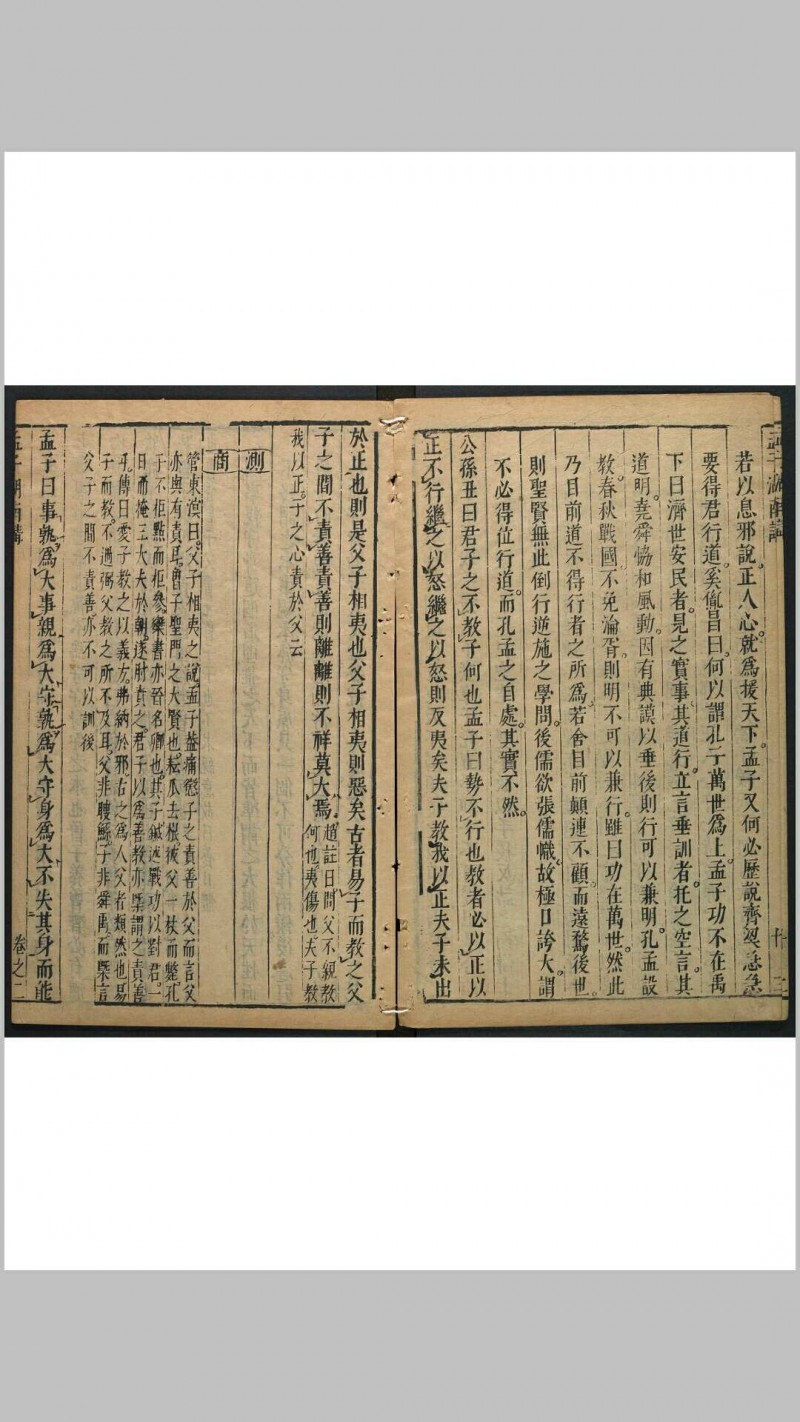 若以息邪說正人心就為援天下孟子又何必歷說齊梁急急
要得君行道奚亂昌曰何以謂孔子萬世為上孟子功不在禹
下曰濟世安民者見之實事其道行立言垂訓者托之空言其
道明堯舜恊和風動因有典謨以垂後則行可以兼明孔孟設
教春秋戰國不免淪胥則明不可以兼行雖曰功在萬世然此
乃目前道不得行者之所為若舍目前顛連不顧而遠騖後世
則聖賢無此倒行逆施之學問後儒欲張儒幟故極口誇大謂
不必得位行道而孔孟之自處其實不然
公孫丑曰君子之不教子何也孟子曰勢不行也教者必以正以
正不行繼之以怒繼之以怒則反夷矣夫子教我以正夫子未出
於正也則是父子相夷也父子相夷則惡矣古者易子而教之父
子之間不責善責善則離離則不祥莫大焉趙註曰問父不親教
何也夷傷也夫子教
我以正子之心責於父云
測
商
管東溟曰父子相夷之說孟子蓋痛懲子之責善於父而言父
亦與有責耳曾子聖門之大賢也耘瓜去根彼父一杖而斃孔
子不拒點而拒參欒書亦晉名卿也其子鍼述戰功以對君一
日而掩三大夫於朝遂肘責之君子以為善教亦槩謂之責善
乎傳曰愛子教之以義方弗納於邪古之為人父者類然也易
子而教不過弼父教之所不及耳父非瞍鯀子非舜禹而槩言
父子之間不責善亦不可以訓後
孟子曰事孰為大事親為大守孰為大守身為大不失其身而能
卷之二